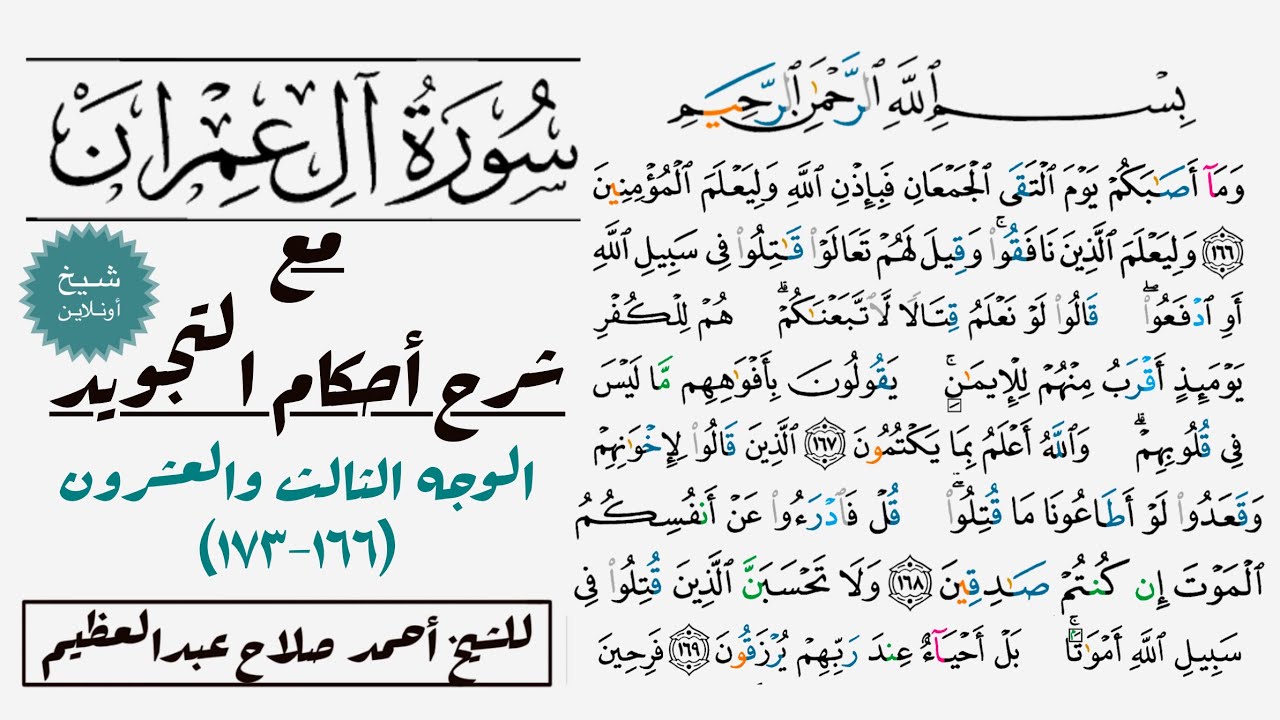 سُورَةُ آلِ عِمْرَانَ
مع
شرح أحكام التجويد
الوجه الثالث والعشرون
(١٦٦-١٧٣)
للشيخ أحمد صلاح عبدالعظيم
شيخ
أونلاين
بِسْمِ ٱللَّهِ ٱلرَّحْمَٰنِ ٱلرَّحِيمِ
وَمَآ أَصَٰبَكُمْ يَوْمَ ٱلْتَقَى ٱلْجَمْعَانِ فَبِإِذْنِ ٱللَّهِ وَلِيَعْلَمَ ٱلْمُؤْمِنِينَ
١٦٦ وَلِيَعْلَمَ ٱلَّذِينَ نَافَقُوا۟ ۚ وَقِيلَ لَهُمْ تَعَالَوْا۟ قَٰتِلُوا۟ فِى سَبِيلِ ٱللَّهِ
أَوِ ٱدْفَعُوا۟ ۖ قَالُوا۟ لَوْ نَعْلَمُ قِتَالًا لَّٱتَّبَعْنَٰكُمْ ۗ هُمْ لِلْكُفْرِ
يَوْمَئِذٍ أَقْرَبُ مِنْهُمْ لِلْإِيمَٰنِ ۚ يَقُولُونَ بِأَفْوَٰهِهِم مَّا لَيْسَ
فِى قُلُوبِهِمْ ۗ وَٱللَّهُ أَعْلَمُ بِمَا يَكْتُمُونَ ١٦٧ ٱلَّذِينَ قَالُوا۟ لِإِخْوَٰنِهِمْ
وَقَعَدُوا۟ لَوْ أَطَاعُونَا مَا قُتِلُوا۟ ۗ قُلْ فَٱدْرَءُوا۟ عَنْ أَنفُسِكُمُ
ٱلْمَوْتَ إِن كُنتُمْ صَٰدِقِينَ ١٦٨ وَلَا تَحْسَبَنَّ ٱلَّذِينَ قُتِلُوا۟ فِى
سَبِيلِ ٱللَّهِ أَمْوَٰتًۢا ۚ بَلْ أَحْيَآءٌ عِندَ رَبِّهِمْ يُرْزَقُونَ ١٦٩ فَرِحِينَ